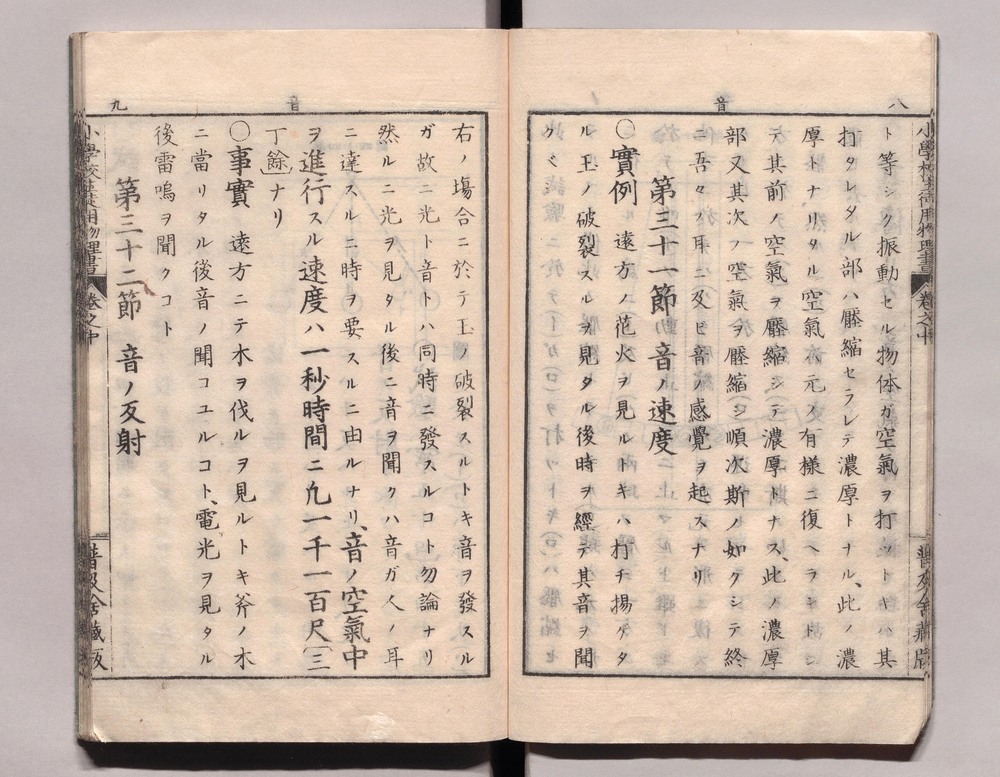 八
音
小學校生徒用物理書 卷之中
普及舍藏版
ト等シク振動セル物体ガ空氣ヲ打ツトキハ其
打タレタル部ハ壓縮セラレテ濃厚トナル、此ノ濃
厚トナリタル空氣ガ元ノ有樣ニ復ヘラントシ
テ其前ノ空氣ヲ壓縮シテ濃厚トナス、此ノ濃厚
部又其次ノ空氣ヲ壓縮シ順次斯ノ如クシテ終
ニ吾々ノ耳ニ及ビ音ノ感覺ヲ起スナリ
第三十一節 音ノ速度
〇實例 遠方ノ花火ヲ見ルトキハ打チ揚ゲタ
ル玉ノ破裂スルヲ見タル後時ヲ經テ其音ヲ聞
クベシ
音
九
右ノ塲合ニ於テ玉ノ破裂スルトキ音ヲ發スル
ガ故ニ光ト音トハ同時ニ發スルコト勿論ナリ
然ルニ光ヲ見タル後ニ音ヲ聞クハ音ガ人ノ耳
ニ達スルニ時ヲ要スルニ由ルナリ、音ノ空氣中
ヲ進行スル速度ハ一秒時間ニ凡一千一百尺(三
丁餘)ナリ
〇事實 遠方ニテ木ヲ伐ルヲ見ルトキ斧ノ木
ニ當リタル後音ノ聞コユルコト、電光ヲ見タル
後雷鳴ヲ聞クコト
第三十二節 音ノ反射
小學校生徒用物理書 卷之中
普及舍藏版